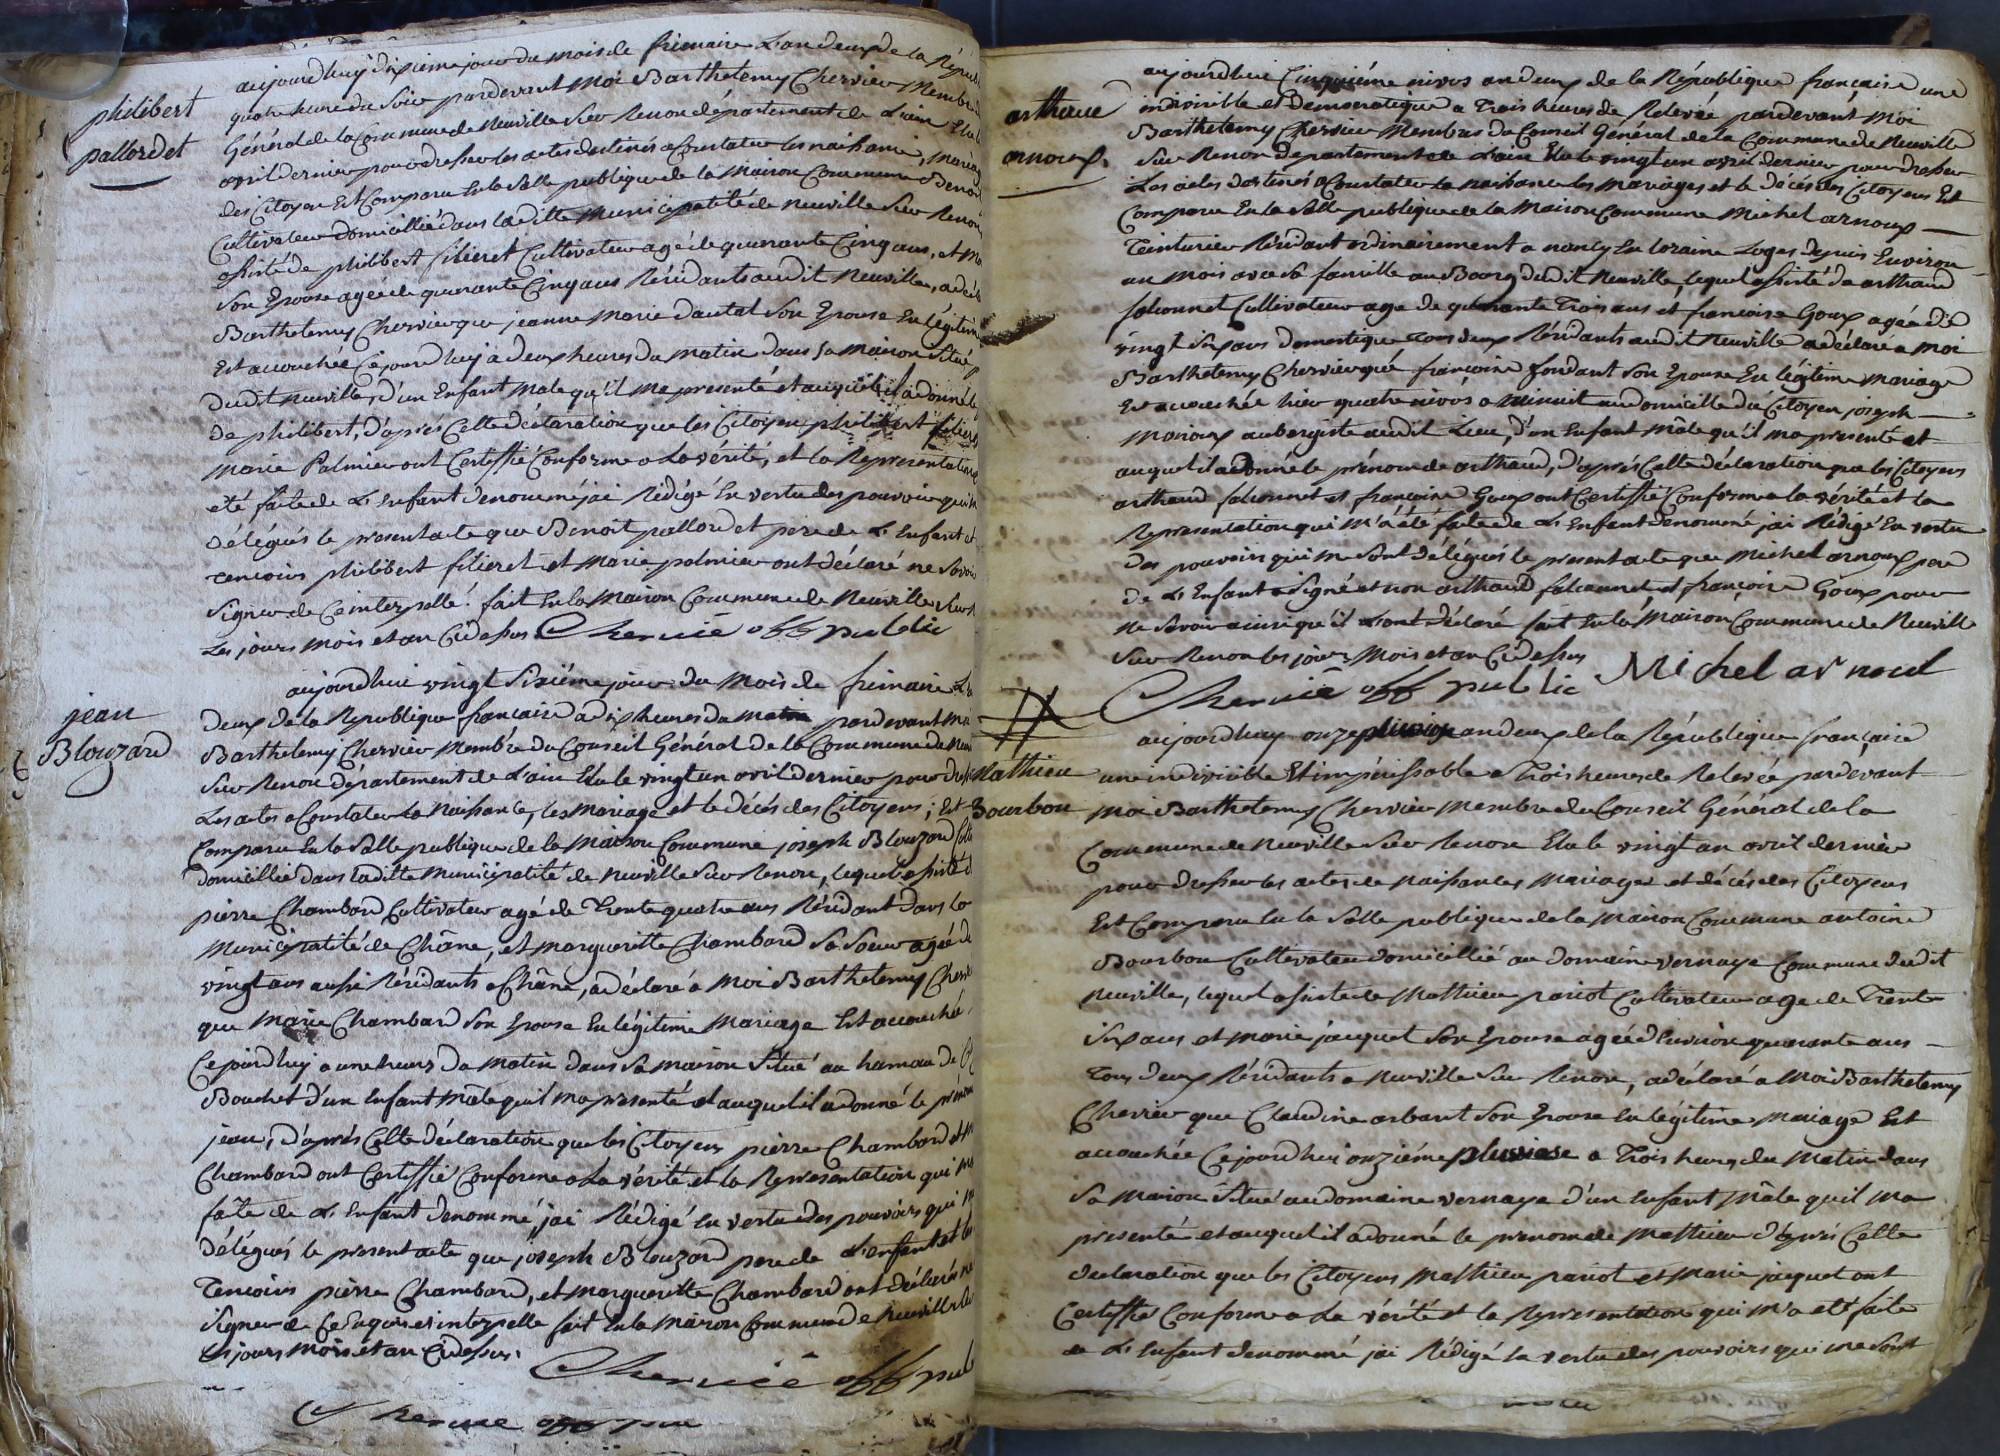 philibert
pallordet
aujourdhuy dixieme jour du mois de frimaire L'an deux de la Répub
quatre heure du Soir pardevant Moi Barthelemy Chervier Membre
Général de la Commune de Neuville Sur Renon département de L'ain Elu le
avril dernier pour dresser les actes destinés a Constater les naissance, mariag
des Citoyen Est Comparu En la Salle publique de la Maison Commune Benoit
Cultivateur domicillié dans laditte Municipalité de neuville Sur Renon
assisté de philibert filieret Cultivateur agé de quarante Cinq ans, et Ma
Son Epouse agée de quarante Cinq ans Résidants audit Neuville, a déclaré
Barthelemy Chervier que jeanne Marie dautal Son Epouse En légitime
Est accouchée Cejourdhuy à deux heures du matin dans sa Maison Situé
dudit neuville, d'un Enfant Male qu'il ma presenté et auquel il a donné le
de philibert, d'après Cette déclaration que les Citoyen philibert filieret
Marie Palmier ont Certiffié Conforme a La vérité, et la Representation
été faite de L'Enfant denommé jai Rédigé En vertu des pouvoir qui m
délégués le present acte que Benoit pallordet pere de L'Enfant et
temoins philibert filieret et Marie palmier ont déclaré ne Savoir
Signer de Ce interpellé. fait En la Maison Commune de Neuville Sur
Les jours Mois et an Cidessus Chervié off public
jean
Blouzard
aujourdhui vingt Sixiéme jour du Mois de frimaire L'an
deux de la République française a dix heures du Matin pardevant Moi
Barthelemy Chervier Membre du Conseil Général de la Commune de Neu
Sur Renon département de L'ain Elu le vingt un avril dernier pour dress
Les actes a Constater La Naissance, les Mariage et le décés des Citoyens; Est
Comparu En la Salle publique de la Maison Commune joseph Blouzard Cult
domicillié dans laditte Municipalité de neuville Sur Renon, lequel assisté d
pierre Chambard Cultivateur agé de Trente quatre ans Résidant dans la
Municipalité de Châne, et margueritte Chambard Sa Soeur agée de
vingt ans aussi Résidants a Châne, a déclaré à Moi Barthelemy Cherv
que Marie Chambard Son Epouse En légitime Mariage Est accouché
Cejourdhuy a une heure du Matin dans Sa maison Situé au hamau de
Bouchet d'un Enfant Mâle qu'il ma presenté et auquel il a donné le prénom
jean, d'aprés Cette déclaration que les Citoyens pierre Chambard et M
Chambard ont Certiffié Conforme a La vérité et la Representation qui m
faite de L'Enfant denommé jai Rédigé En vertu des pouvoirs qui m
délégués le present acte que joseph Blouzard pere de L'enfant et les
Temoins pierre Chambard, et margueritte Chambard ont déclarés ne
Signer de Ce Enquis et interpellé fait En la Maison Commune de Neuville Sur
Les jours Mois et an Cidessus.
Chervié off pub
Chervié off pub
arthaud
arnoux.
aujourdhui Cinquiéme nivos an deux de la République française une
indivisible et democratique a Trois heures de Relevée pardevant Moi
Barthelemy Chervier Membres du Conseil Général de la Commune de Neuville
Sur Renon departement de L'ain Elu le vingt un avril dernier pour dresser
Les actes destinés a Constater la naissance les Mariages et le décés des Citoyens Est
Comparu En la Salle publique de la Maison Commune Michel arnoux
Teinturier Résidant ordinairement a nancy En loraine Logés depuis Environ
un Mois avec Sa famille au Bourg dudit Neuville, lequel assisté de arthaud
falconnet Cultivateur age de quarante Trois ans et françoise Goux agée de
vingt six ans domestique, tous deux Résidants audit Neuville a déclaré a Moi
Barthelemy Chervier que françoise fondant Son Epouse En légitime Mariage
Est accouchée hier quatre nivôs a Minuit au domicille du Citoyen joseph
Marioux aubergiste audit Lieu, d'un Enfant Male qu'il ma presenté et
auquel il a donné le prénom de arthaud, d'aprés Cette déclaration que les Citoyens
arthaud falconnet et françoise Goux ont Certiffié Conforme a la vérité et la
Representation qui M'a été faite de L'Enfant denommé jai Rédigé En vertu
des pouvoirs qui me Sont délégués le present acte que Michel arnoux pere
de L'Enfant a Signé et non arthaud falconnet et françoise Goux pour
ne Savoir ainsi qu'il L'ont déclaré fait En la Maison Commune de Neuville
Sur Renon les jours Mois et an Cidessus
Michel arnoul
Chervié off public
Mathieu
Bourbon
aujourdhuy onze pluviose an deux de la République française
une indivisible Et impérissable a Trois heures de Relevée pardevant
Moi Barthelemy Chervier Membre du Conseil Général de la
Commune de Neuville Sur Renon Elu le vingt un avril dernier
pour dresser les actes de Naissances Mariages et décés des Citoyens
Est Comparu En la Salle publique de la Maison Commune antoine
Bourbon Cultivateur domicillié au domaine vernaye Commune dudit
Neuville, lequel assisté de Mathieu pariot Cultivateur age de Trente
six ans et Marie jacquet Son Epouse agée d'Environ quarante ans
Tous deux Résidants a Neuville Sur Renon, a déclaré a Moi Barthelemy
Chervier que Claudine arbant Son Epouse En légitime Mariage Est
accouchée Cejourdhui onziéme pluviose a Trois heures du Matin dans
Sa Maison Situé au domaine vernaye d'un Enfant Mâle qu'il Ma
presenté et auquel il a donné le prenom de Mathieu d'aprés Cette
declaration que les Citoyens Mathieu pariot et Marie jacquet ont
Certiffié Conforme a La vérité et la Representation qui M'a eté faite
de L'Enfant denommé jai Rédigé En vertu des pouvoirs qui me Sont